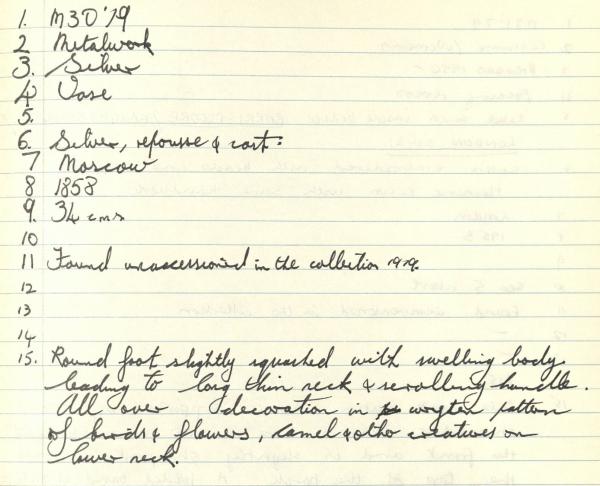 1. M30'79
2 Metalwork
3. Silver
4 Vase
5.
6. Silver, repousse & cast:
7 Moscow
8 1858
9. 34 cms
10
11 Found unaccessioned in the collection 1979.
12
13
14
15. Round foot slightly squashed with swelling body
leading to long thin neck & scrolling handle.
All over decoration in wrythen pattern
of birds & flowers, camel & other creatures on
lower neck.